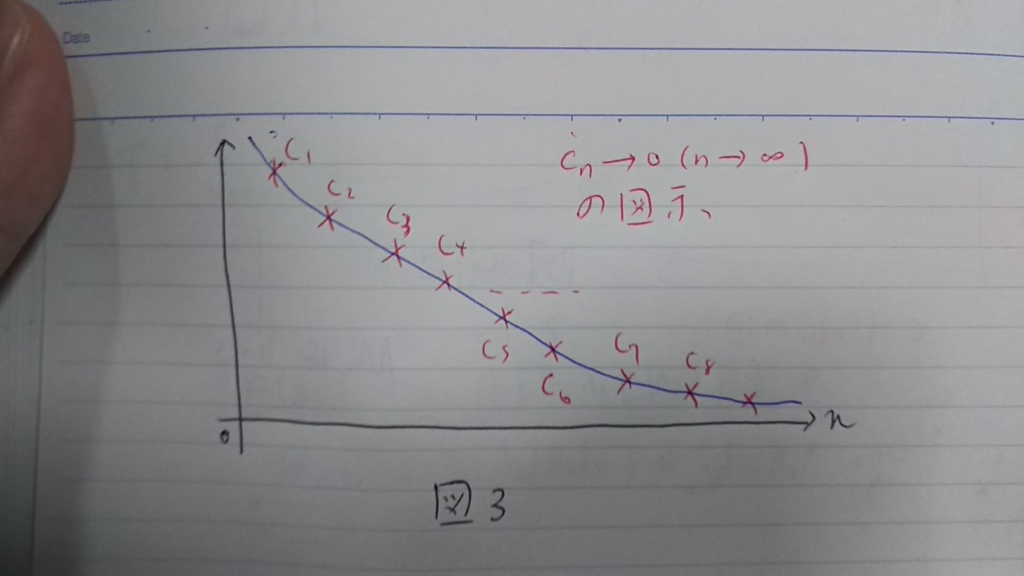 Date
C1
Cn→0 (n→∞)
の図示
C2
C3
C4
C5
C6
C7
C8
0
n
図3